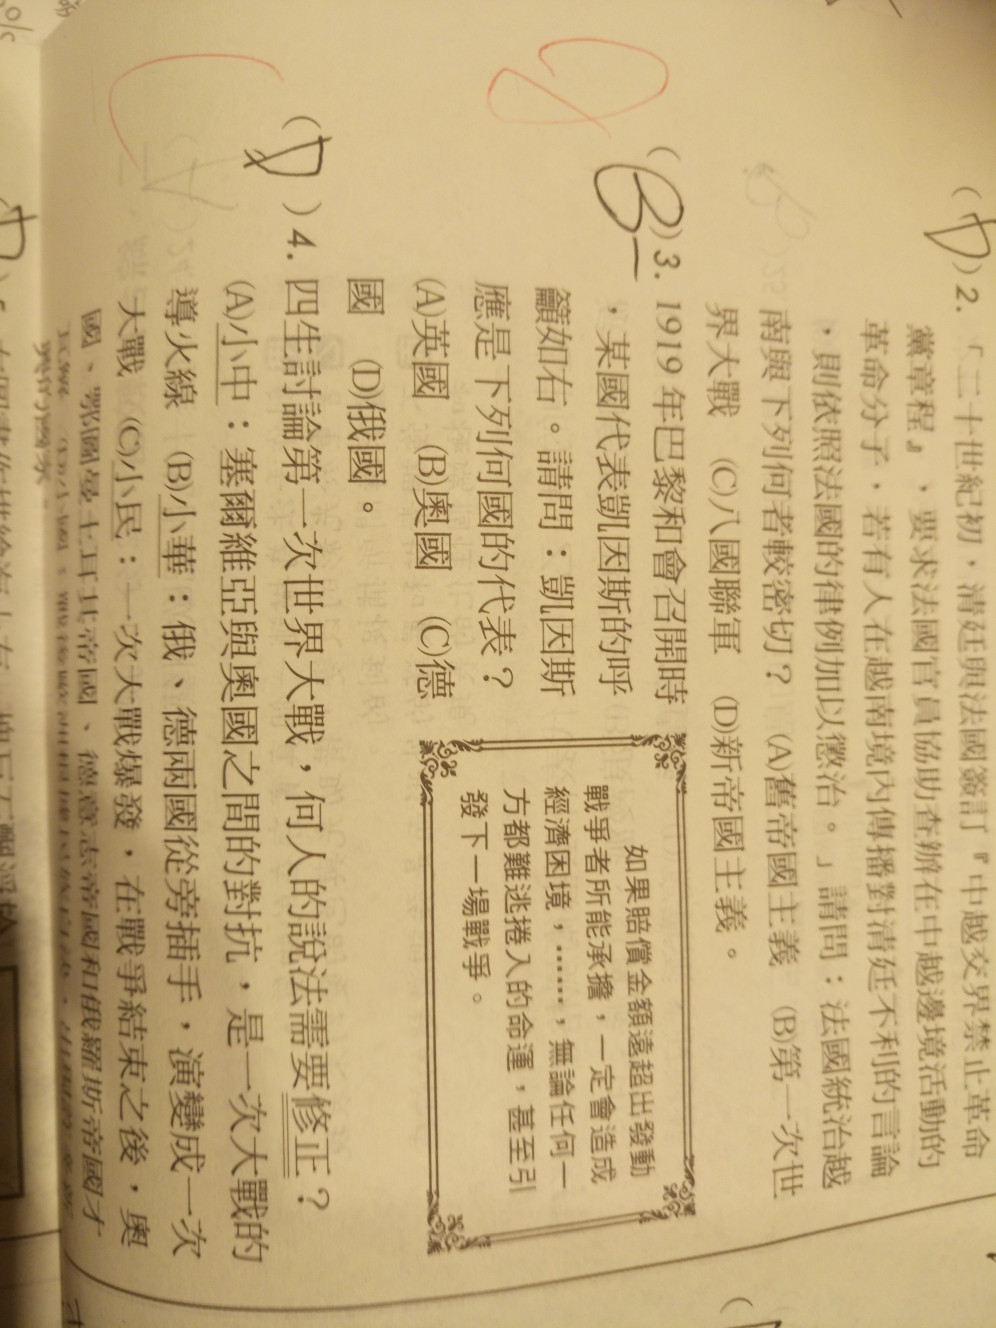 (D)2.「二十世紀初，清廷與法國簽訂『中越交界禁止革命
黨章程』、要求法國官員協助查辦在中越邊境活動的
革命分子，若有人在越南境內傳播對清廷不利的言論
，則依照法國的律例加以懲治。」請問：法國統治越
南與下列何者較密切？ (A)舊帝國主義 (B)第一次世
界大戰 (C)八國聯軍 (D)新帝國主義。
(B)3. 1919 年巴黎和會召開時
，某國代表凱因斯的呼
籲如右。請問：凱因斯
應是下列何國的代表？
(A)英國 (B)奧國 (C)德
國 (D)俄國。
如果賠償金額遠超出發動
戰爭者所能承擔，一定會造成
經濟困境，……，無論任何一
方都難逃捲入的命運，甚至引
發下一場戰爭。
(D)4. 四生討論第一次世界大戰，何人的說法需要修正？
(A)小中：塞爾維亞與奧國之間的對抗，是一次大戰的
導火線 (B)小華：俄、德兩國從旁插手，演變成一次
大戰 (C)小民：一次大戰爆發，在戰爭結束之後，奧
國、鄂圖曼土耳其帝國、德意志帝國和俄羅斯帝國才